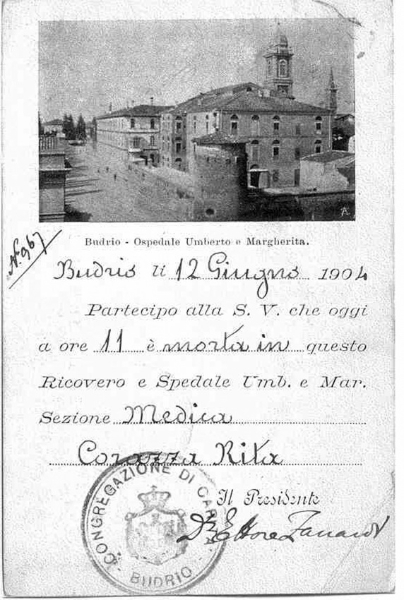 Budrio - Ospedale Umberto e Margherita.
N. 967
Budrio li 12 Giugno 1904
Partecipo alla S. V. che oggi
a ore 11 è morta in questo
Ricovero e Spedale Umb. e Mar.
Sezione Medica
Corazza Rita
CONGREGAZIONE DI
BUDRIO
Il Presidente
Ettore